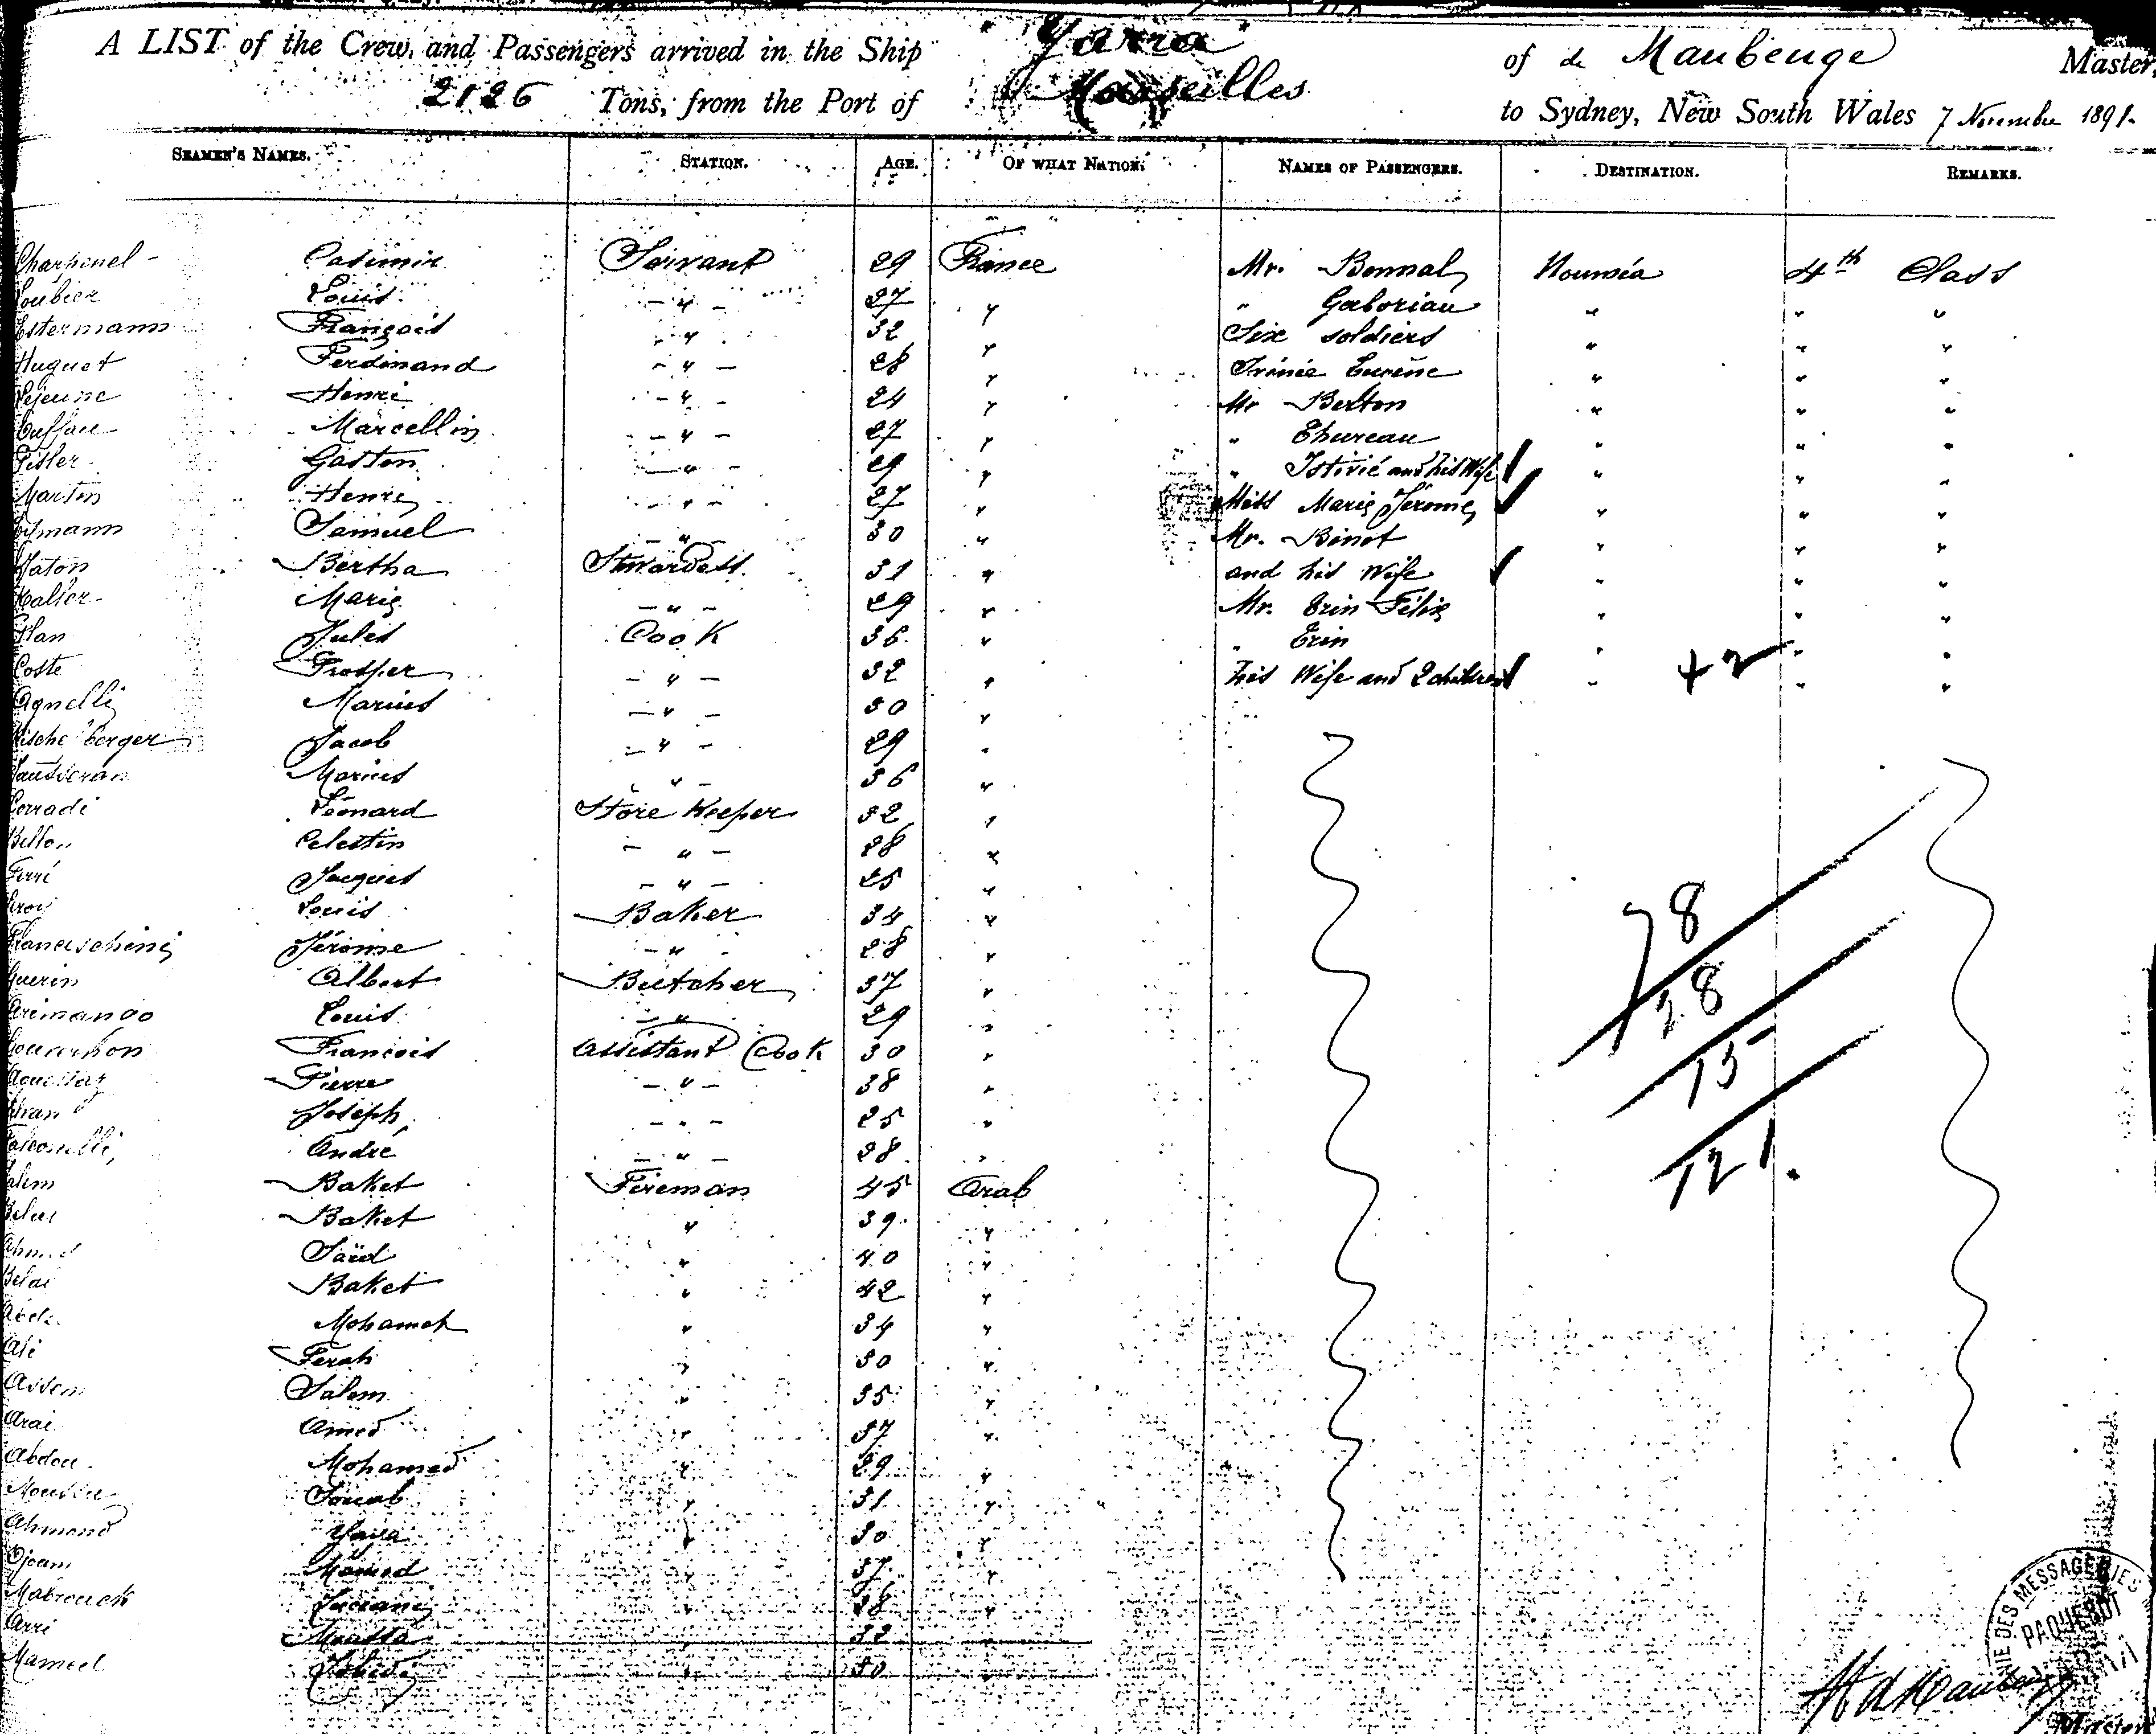 A LIST of the Crew, and Passengers arrived in the Ship "Yarra" of de Maubeuge Master,
2126 Tons, from the Port of Marseilles to Sydney, New South Wales 7 Novembre 1891.
SEAMEN'S NAMES. STATION. AGE. OF WHAT NATION. NAMES OF PASSENGERS. DESTINATION. REMARKS.
Charpenel - Casimir Servant 29 France Mr. Bonnal Nouméa 4th Class
Loubier Louis - " - 27 " " Gaboriau " " "
Estermann François - " - 32 " Six soldiers " " "
Huguet Ferdinand - " - 28 " " " "
Lejeune Henri - " - 24 " Mr Berton " " "
Marcellin - " - 27 " " Thureau " " "
Gaston - " - 29 " " and his Wife " " "
Marton Henri - " - 27 " Miss Marie Jérome " " "
Samuel - " - 30 " Mr. Binot " " "
Bertha Stewardess 31 " and his Wife " " "
Marie - " - 29 " Mr. Erin Félix " " "
Plan Jules Cook 36 " " Erin " " "
Coste Prosper - " - 32 " his Wife and 2 children " +2 " "
Agnelli Marius - " - 30 "
Jacob - " - 29 "
Marius " - 36 "
Corradi Léonard Store Keeper 32 "
Bellon Celestin - " - 28 "
Ferré Jacques - " - 25 "
Louis Baker 34 " 78
Franceschini Jérome - " 28 "
Guerin Albert Butcher 37 " 28
Louis - " 29 "
François Assistant Cook 30 " 15
Pierre - " - 38 "
Joseph - " - 25 "
André - " - 28 " 121.
Salem Baket Fireman 45 Arab
Baket " 39 "
Ahmed Saïd " 40 "
Belai Baket " 42 "
Mohamet " 34 "
Ali Ferah " 30 "
Assem Salem " 35 "
Arai Amed " 37 "
Abdou Mohamed " 29 "
Moussa " 31 "
Ahmond Yaya " 30 "
Djoum Mamed " 37 "
Mabrouck " 28 "
Arri " 32 "
Mamed " 30 "
DES MESSAGERIES
PAQUEBOT
H de Maubeuge
Master